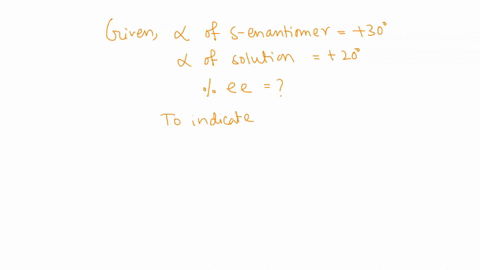 Given, α of S-enantiomer = +30°
α of solution = +20°
% ee = ?
To indicate